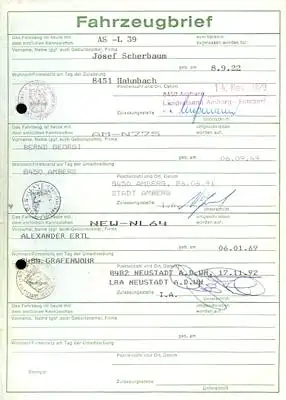 Fahrzeugbrief
Das Fahrzeug ist heute mit dem amtlichen Kennzeichen AS -L 39 zugelassen worden für
Vorname, Name (ggf. auch Geburtsname), Firma
Josef Scherbaum
geb. am 8.9.22
Wohnort/Firmensitz am Tag der Zulassung
8451 Hahnbach
Postleitzahl und Ort, Datum 14. Nov. 1979
8450 Amberg
Landratsamt Amberg-Sulzbach
Zulassungsstelle
Unterschrift
Das Fahrzeug ist heute mit dem amtlichen Kennzeichen AM-N775 umgeschrieben worden auf
Vorname, Name (ggf. auch Geburtsname), Firma
BERND GEORGI
geb. am 06.09.69
Wohnort/Firmensitz am Tag der Umschreibung
8450 AMBERG
Postleitzahl und Ort, Datum
8450 AMBERG, 26.06.91
STADT AMBERG
Zulassungsstelle I.A.
Unterschrift
Das Fahrzeug ist heute mit dem amtlichen Kennzeichen NEW-NL64 umgeschrieben worden auf
Vorname, Name (ggf. auch Geburtsname), Firma
ALEXANDER ERTL
geb. am 06.01.69
Wohnort/Firmensitz am Tag der Umschreibung
GRAFENWÖHR
Postleitzahl und Ort, Datum
8482 NEUSTADT A.D.WN, 17.11.92
LRA NEUSTADT A.D.WN
Zulassungsstelle I.A.
Unterschrift
Das Fahrzeug ist heute mit dem amtlichen Kennzeichen umgeschrieben worden auf
Vorname, Name (ggf. auch Geburtsname), Firma
geb. am
Wohnort/Firmensitz am Tag der Umschreibung
Postleitzahl und Ort, Datum
Stempel
Zulassungsstelle
Unterschrift